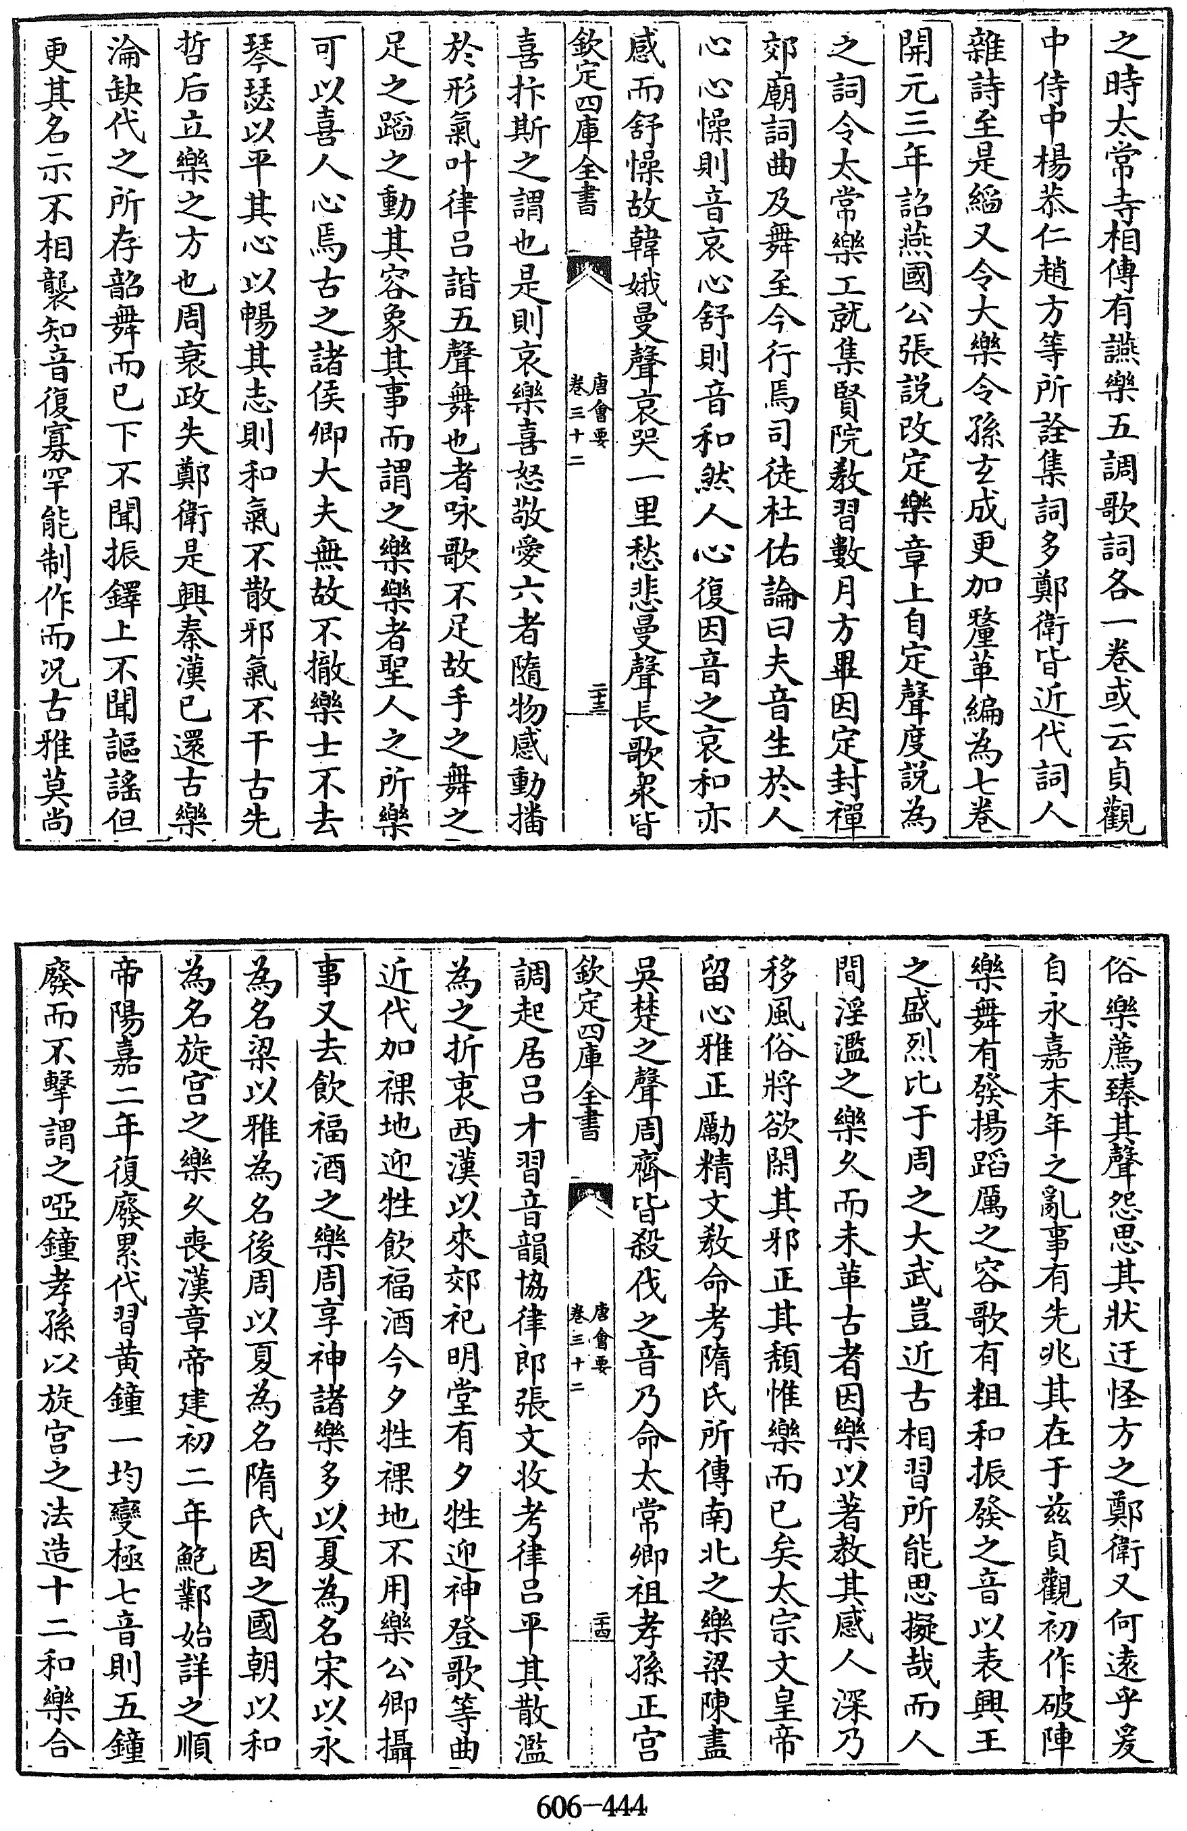 之時太常寺相傳有讌樂五調歌詞各一卷或云貞觀
中侍中楊恭仁趙方等所詮集詞多鄭衛皆近代詞人
雜詩至是縚又令大樂令孫玄成更加釐革編為七卷
開元三年詔燕國公張説改定樂章上自定聲度説為
之詞令太常樂工就集賢院教習數月方畢因定封禪
郊廟詞曲及舞至今行焉司徒杜佑論曰夫音生於人
心心慘則音哀心舒則音和然人心復因音之哀和亦
感而舒慘故韓娥曼聲哀哭一里愁悲曼聲長歌衆皆
欽定四庫全書 唐會要卷三十二 二十三
喜抃斯之謂也是則哀樂喜怒敬愛六者隨物感動播
於形氣叶律吕諧五聲舞也者咏歌不足故手之舞之
足之蹈之動其容象其事而謂之樂樂者聖人之所樂
可以喜人心焉古之諸侯卿大夫無故不撤樂士不去
琴瑟以平其心以暢其志則和氣不散邪氣不干古先
哲后立樂之方也周衰政失鄭衛是興秦漢已還古樂
淪缺代之所存韶舞而已下不聞振鐸上不聞謳謠但
更其名示不相襲知音復寡罕能制作而况古雅莫尚
俗樂薦臻其聲怨思其狀迂怪方之鄭衛又何遠乎爰
自永嘉末年之亂事有先兆其在于兹貞觀初作破陣
樂舞有發揚蹈厲之容歌有粗和振發之音以表興王
之盛烈比于周之大武豈近古相習所能思擬哉而人
間淫濫之樂久而未革古者因樂以著教其感人深乃
移風俗將欲閑其邪正其頽惟樂而已矣太宗文皇帝
留心雅正勵精文教命考隋氏所傳南北之樂梁陳盡
吳楚之聲周齊皆殺伐之音乃命太常卿祖孝孫正宫
欽定四庫全書 唐會要卷三十二 二十四
調起居吕才習音韻協律郎張文收考律吕平其散濫
為之折衷西漢以來郊祀明堂有夕牲迎神登歌等曲
近代加裸地迎牲飲福酒今夕牲裸地不用樂公卿攝
事又去飲福酒之樂周享神諸樂多以夏為名宋以永
為名梁以雅為名後周以夏為名隋氏因之國朝以和
為名旋宫之樂久喪漢章帝建初二年鮑鄴始詳之順
帝陽嘉二年復廢累代習黄鐘一均變極七音則五鐘
廢而不擊謂之啞鐘孝孫以旋宫之法造十二和樂合
606-444